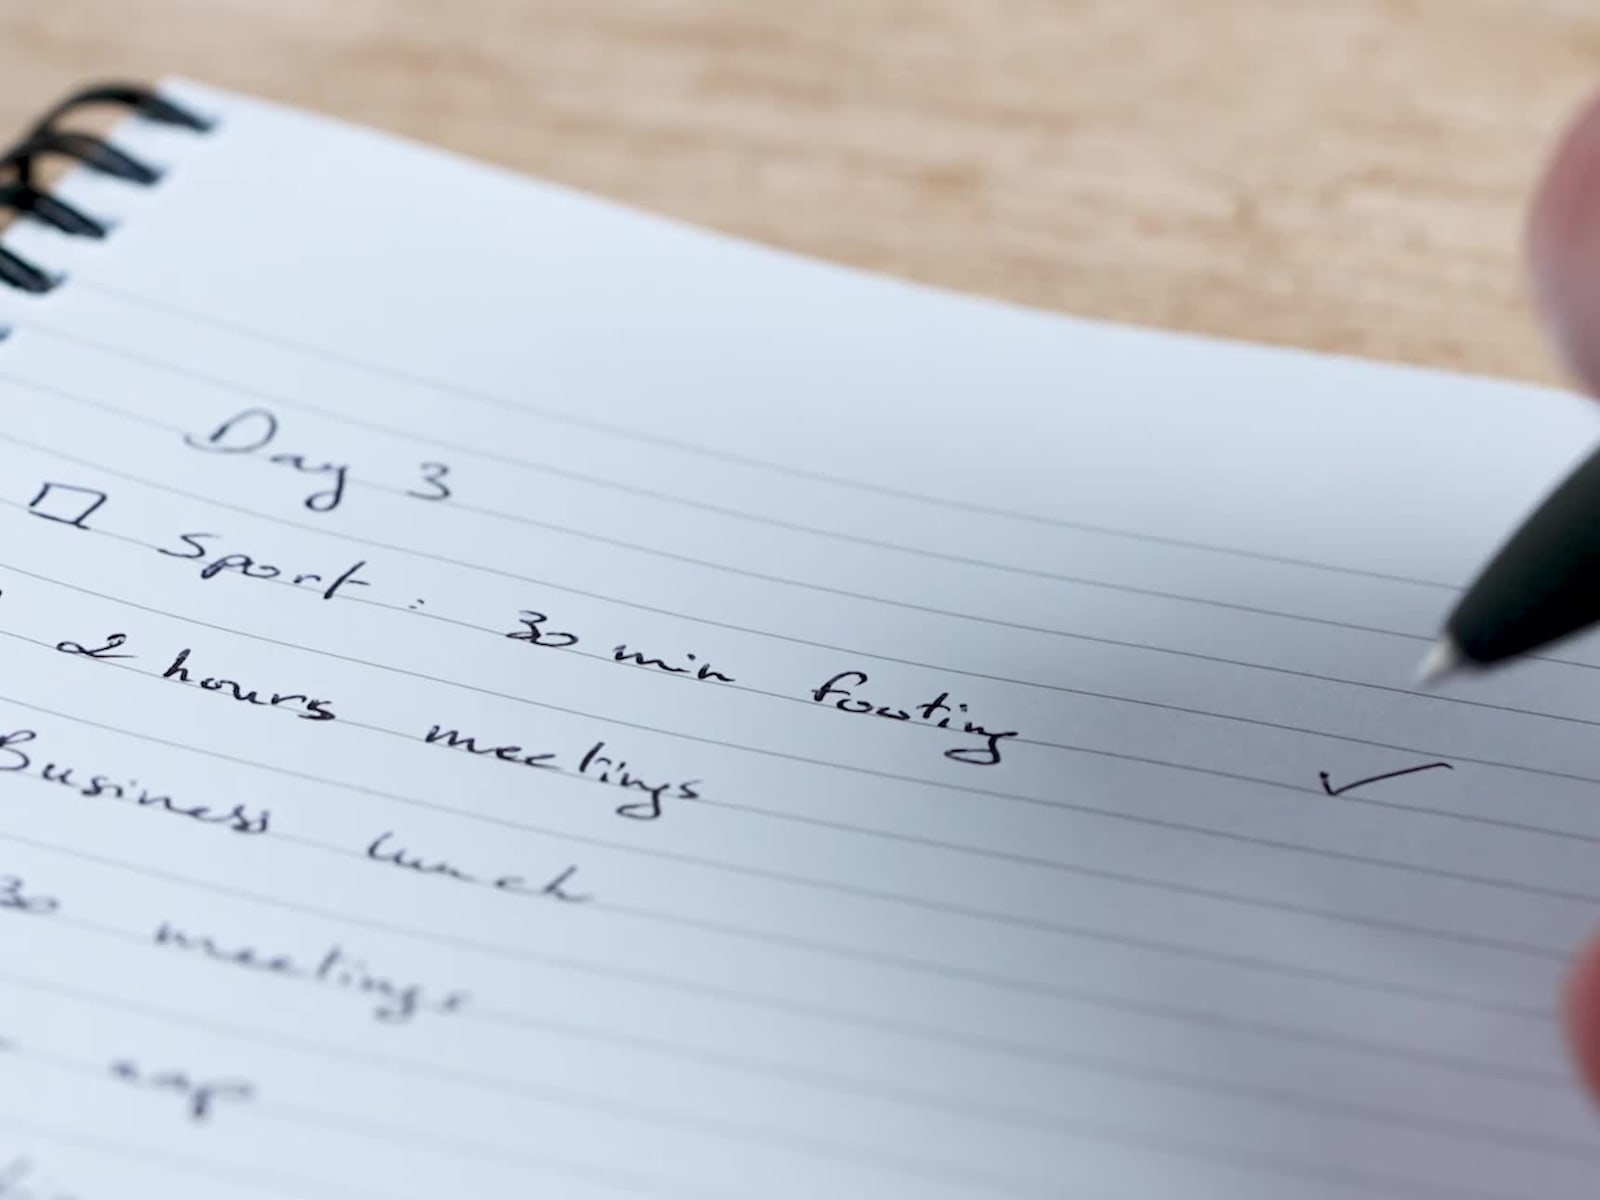 Day 3
□ Sport : 30 min footing ✓
2 hours meetings
Business lunch
30 meetings